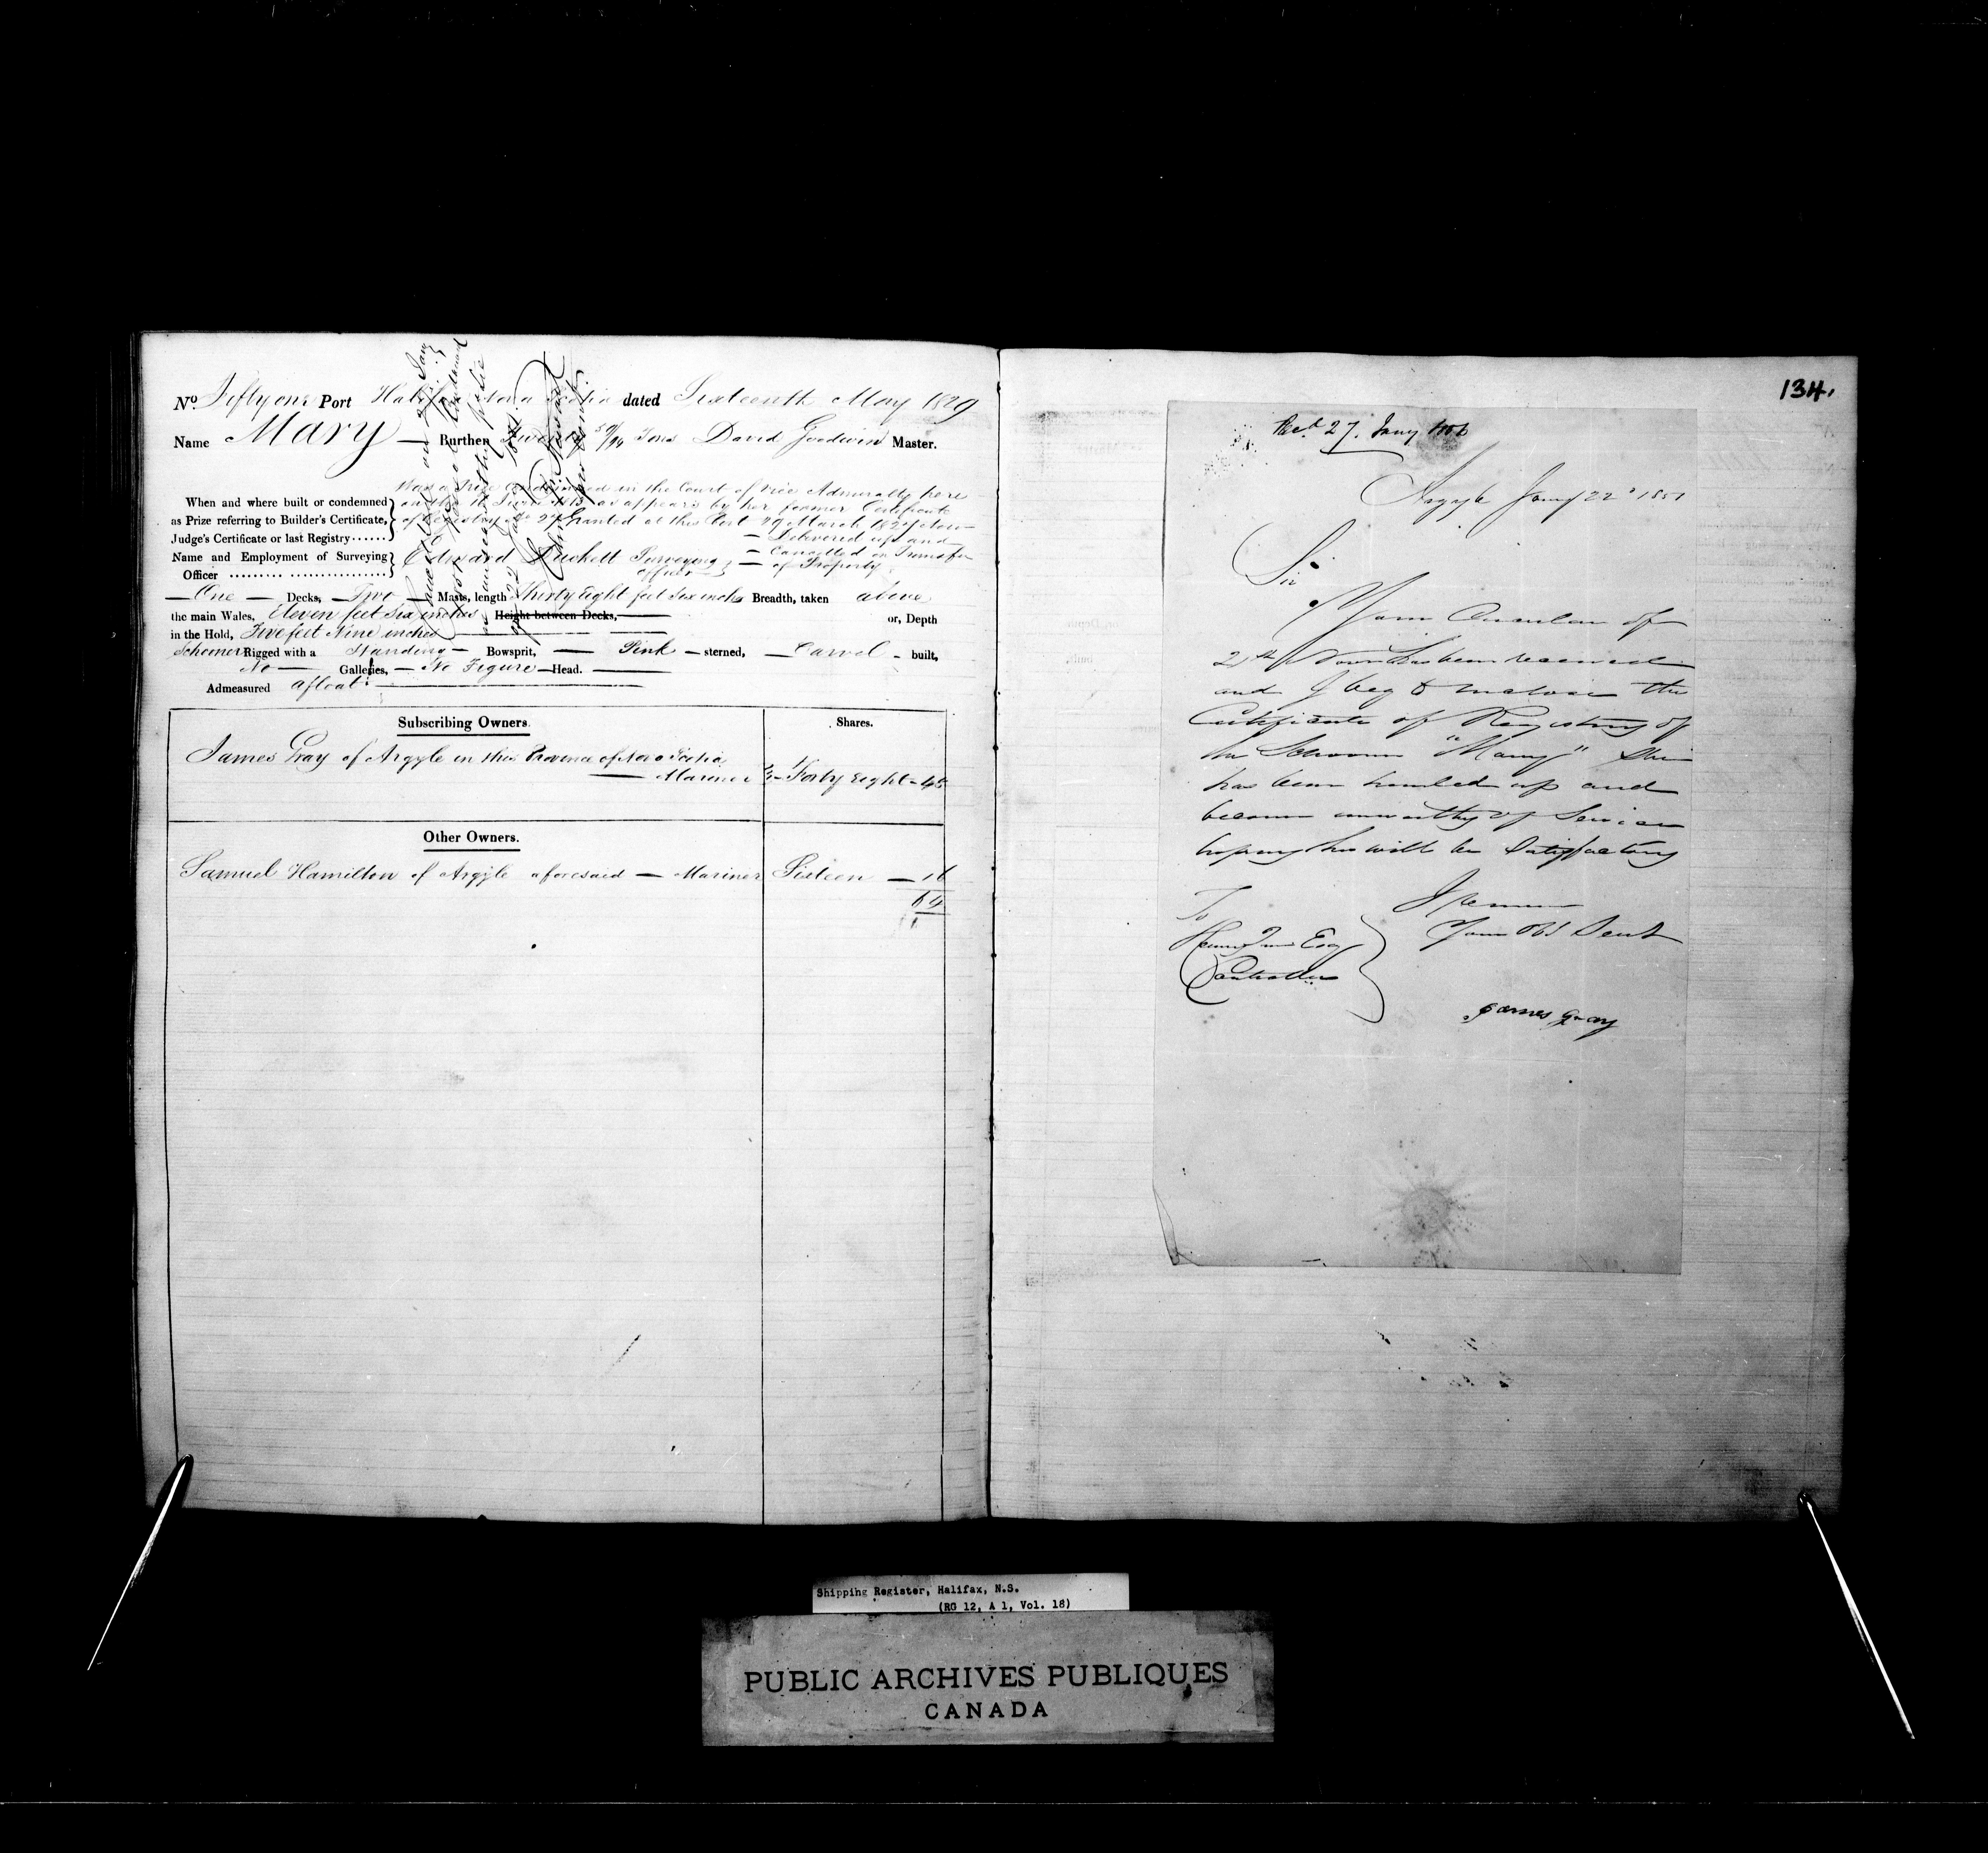 No. Fifty one Port Halifax Nova Scotia dated Sixteenth May 1829
Name Mary — Burthen Twenty 59/94 Tons David Goodwin Master.
When and where built or condemned
as Prize referring to Builder's Certificate,
Judge's Certificate or last Registry
Was a Prize Condemned in the Court of Vice Admiralty here
as appears by her former Certificate
of Registry No 27 Granted at this Port 29 March 1827 Now
— Delivered up and
— Cancelled on Transfer
— of Property
Name and Employment of Surveying
Officer
Edward Duckett Surveying
officer
— One — Decks, — Two — Masts, length Thirty Eight feet Six inches Breadth, taken above
the main Wales, Eleven feet Six inches Height between Decks, or, Depth
in the Hold, Five feet Nine inches
Schooner Rigged with a Standing — Bowsprit, — Pink — sterned, — Carvel — built,
No — Galleries, — No Figure — Head.
Admeasured afloat
Subscribing Owners. Shares.
James Gray of Argyle in this Province of Nova Scotia
— Mariner Forty Eight — 48
Other Owners.
Samuel Hamilton of Argyle aforesaid — Mariner Sixteen — 16
64
134.
Recd 27. Jany
Argyle Jany 22d 1851
Sir
Your Circular of
has been received
and I beg to inclose the
Certificate of Registry of
the Schooner "Mary" She
has been hauled up and
become unworthy of Service
hoping this will be Satisfactory
I remain
Your Obt Servt
To
Esq
Controller
James Gray
Shipping Register, Halifax, N.S.
(RG 12, A 1, Vol. 18)
PUBLIC ARCHIVES PUBLIQUES
CANADA